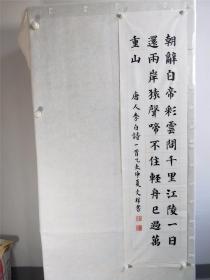 朝辭白帝彩雲間千里江陵一日
還兩岸猿聲啼不住輕舟已過萬
重山
唐人李白詩一首乙未中夏文書